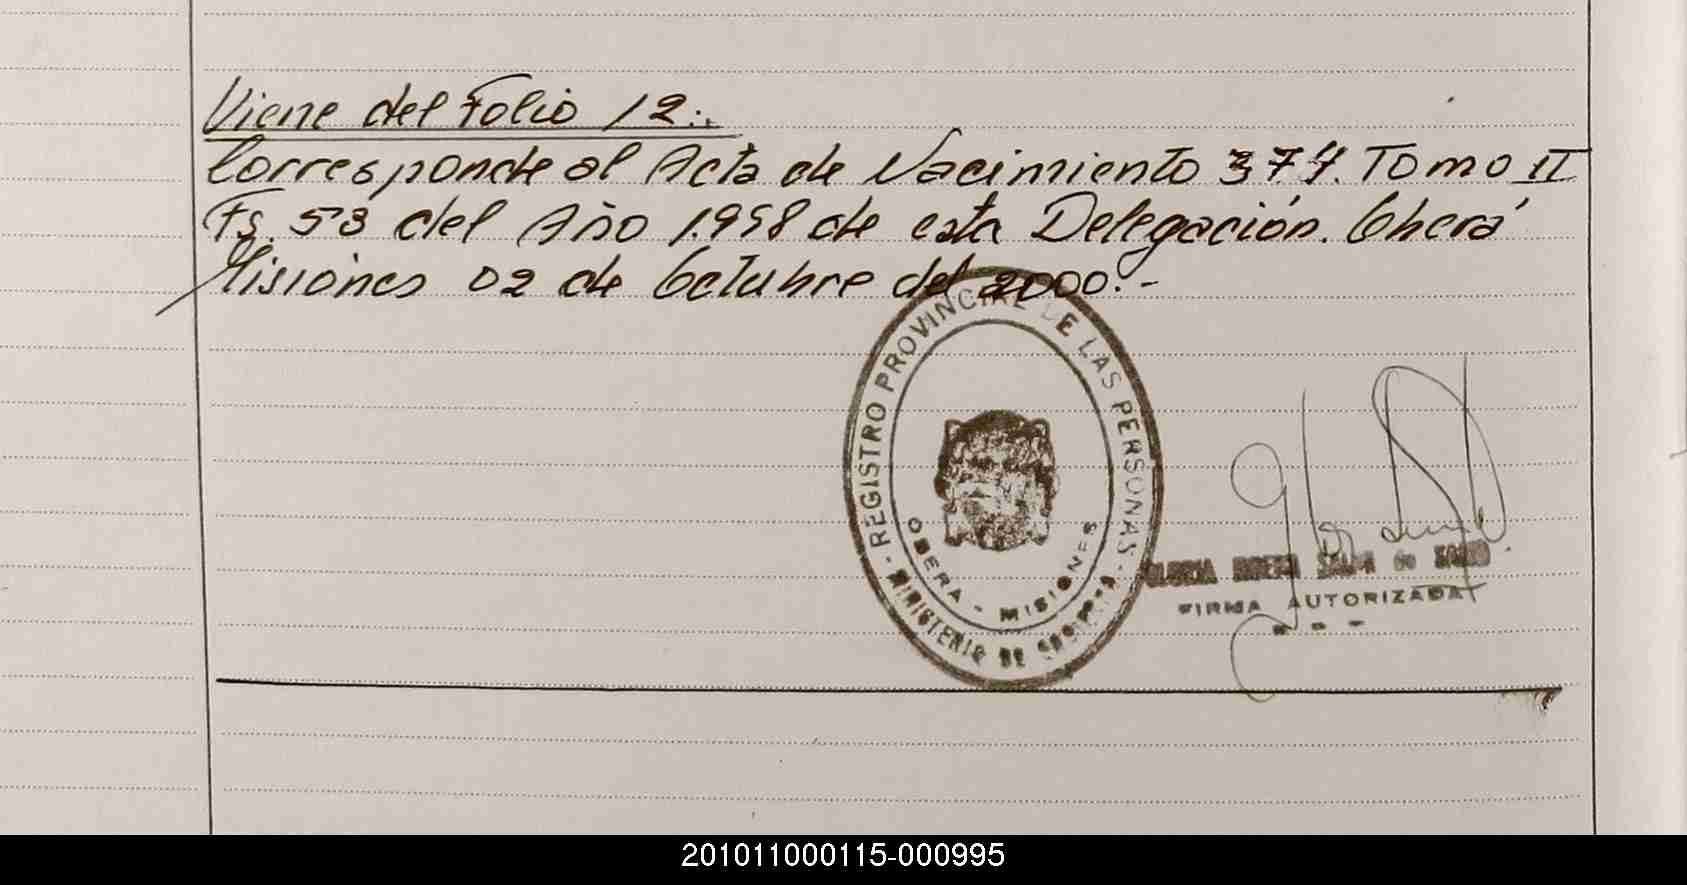 Viene del Folio 12:.
Corresponde al Acta de Nacimiento 374. Tomo II
Fs. 53 del Año 1.958 de esta Delegación. Oberá
Misiones 02 de Octubre del 2000.-
- REGISTRO PROVINCIAL DE LAS PERSONAS -
MINISTERIO DE GOBIERNO
OBERA - MISIONES
GLORIA de
FIRMA AUTORIZADA
201011000115-000995